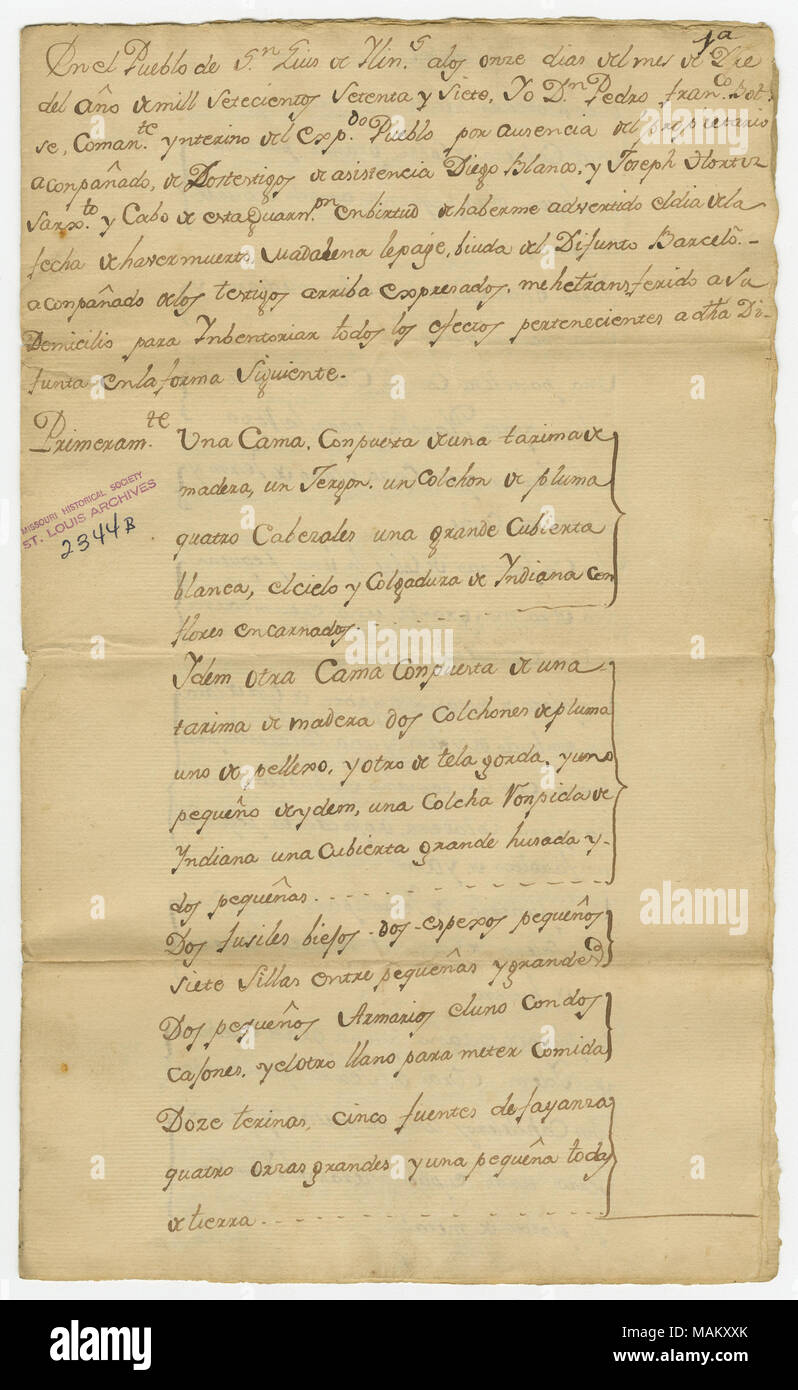 1a
En el Pueblo de Sn Luis de Ylins alos onze dias del mes de Xre
del año de mill Setecientos Setenta y Siete, Yo Dn Pedro franco
se, Comante ynterino del expdo Pueblo por ausencia del propietario
aconpañado, de Dostestigos de asistencia Diego Blanco, y Joseph Hortiz
Sarxto y Cabo de esta Guarnon enbirtud de haberme advertido eldia de la
fecha de haver muerto Madalena lepage, biuda del Difunto Barcelo.-
aconpañado de los testigos arriba expresados, mehetransferido a Su
Domicilio para Ynbentoriar todos los efectos pertenecientes a dtha Di-
funta en la forma Siguiente.
Primeramte Una Cama, Conpuesta de una tarima de
madera, un Jergon, un Colchon de pluma
quatro Cabezales una grande Cubierta
blanca, el cielo y Colgadura de Yndiana con
flores encarnados
MISSOURI HISTORICAL SOCIETY
ST. LOUIS ARCHIVES
2344B
Ydem otra Cama Conpuesta de una
tarima de madera dos Colchones de pluma
uno de pellexo, y otro de tela gorda, y uno
pequeño de ydem, una Colcha de
Yndiana una Cubierta grande husada y-
dos pequeñas
Dos fusiles biejos dos espexos pequeños
siete Sillas entre pequeñas y grandes
Dos pequeños Armarios el uno con dos
Cajones, y el otro llano para meter Comida
Doze terinas, cinco fuentes de fayanza
quatro orzas grandes y una pequeña todas
de tierra
alamy
Image ID: MAKXXK
www.alamy.com